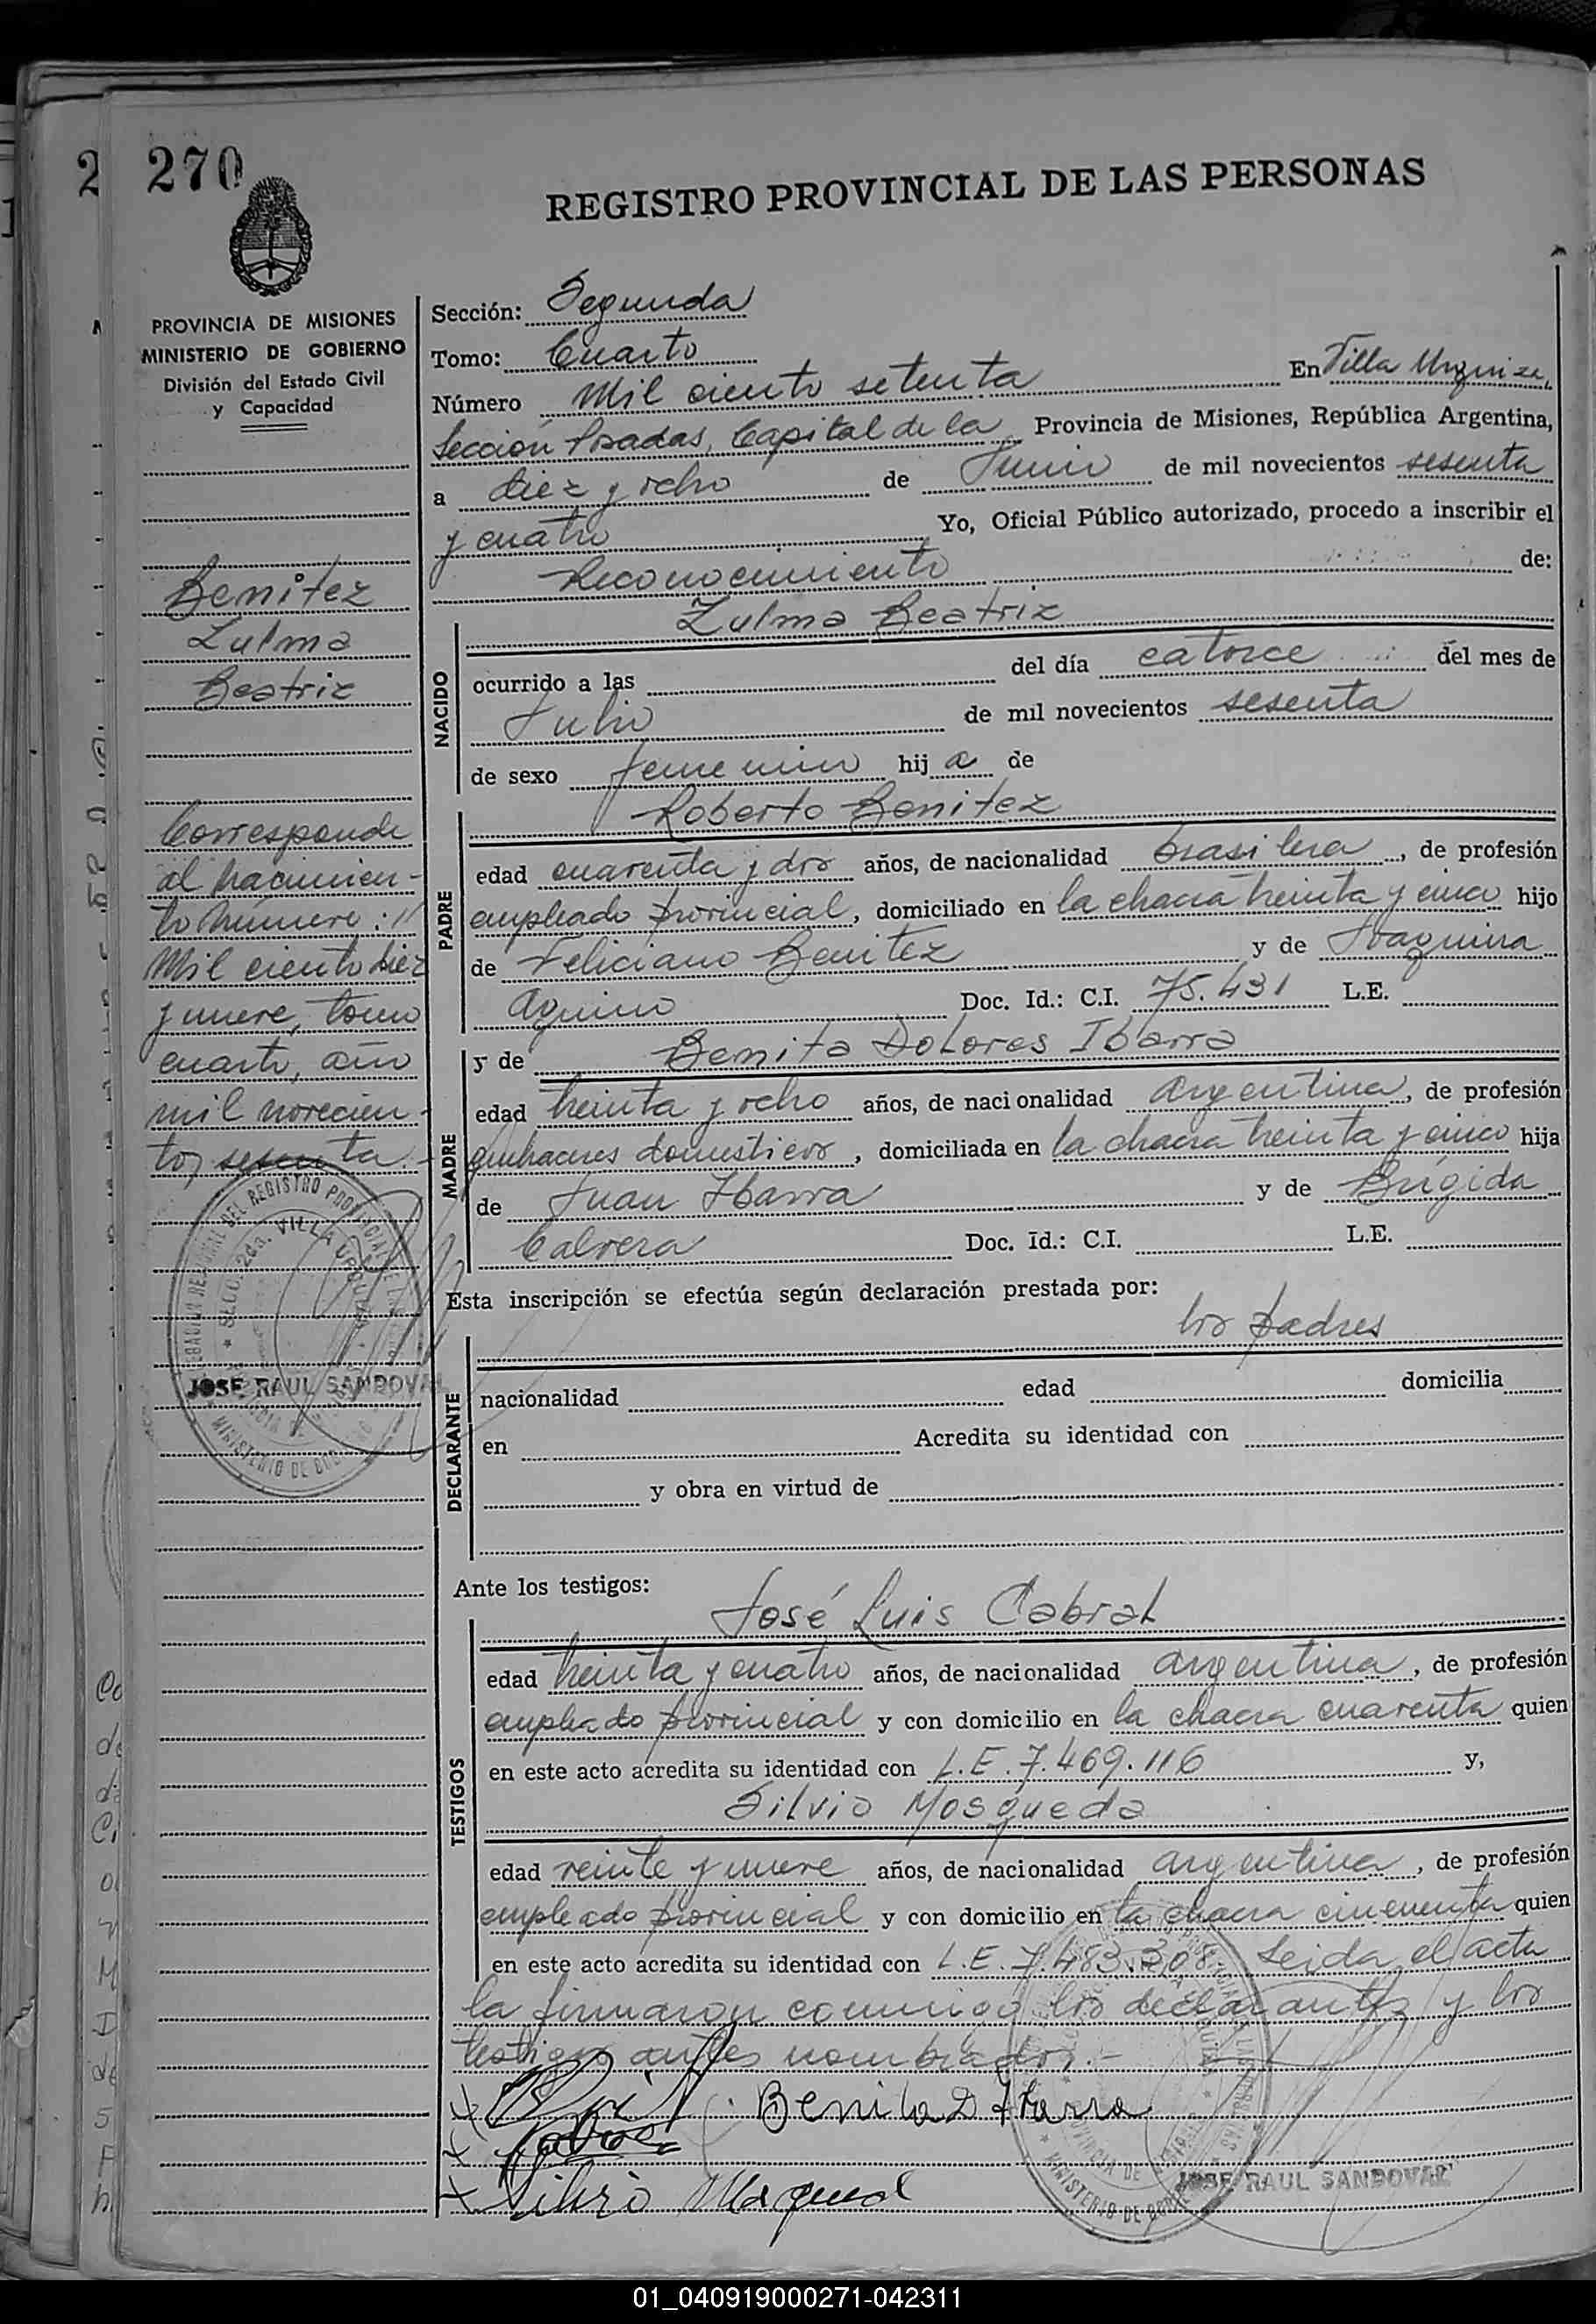 270
REGISTRO PROVINCIAL DE LAS PERSONAS
PROVINCIA DE MISIONES
MINISTERIO DE GOBIERNO
División del Estado Civil
y Capacidad
Benitez
Zulma
Beatriz
Corresponde
al nacimien-
to número:
Mil ciento diez
y nueve, tomo
cuarto, año
mil novecien-
tos sesenta.-
JOSE RAUL SANDOVAL
Sección: Segunda
Tomo: Cuarto
Número Mil ciento setenta En Villa Urquiza,
Sección Posadas, Capital de la Provincia de Misiones, República Argentina,
a diez y ocho de Junio de mil novecientos sesenta
y cuatro Yo, Oficial Público autorizado, procedo a inscribir el
Reconocimiento de:
Zulma Beatriz
NACIDO
ocurrido a las del día catorce del mes de
Julio de mil novecientos sesenta
de sexo femenino hija de
Roberto Benitez
PADRE
edad cuarenta y dos años, de nacionalidad brasilera, de profesión
empleado provincial, domiciliado en la chacra treinta y cinco hijo
de Feliciano Benitez y de Joaquina
Aquino Doc. Id.: C.I. 75.431 L.E.
MADRE
y de Benita Dolores Ibarra
edad treinta y ocho años, de nacionalidad argentina, de profesión
quehaceres domésticos, domiciliada en la chacra treinta y cinco hija
de Juan Ibarra y de Brígida
Cabrera Doc. Id.: C.I. L.E.
Esta inscripción se efectúa según declaración prestada por:
los padres
DECLARANTE
nacionalidad edad domicilia
en Acredita su identidad con
y obra en virtud de
Ante los testigos:
José Luis Cabral
TESTIGOS
edad treinta y cuatro años, de nacionalidad argentina, de profesión
empleado provincial y con domicilio en la chacra cuarenta quien
en este acto acredita su identidad con L.E. 7.469.116 y,
Silvio Mosqueda
edad veinte y nueve años, de nacionalidad argentina, de profesión
empleado provincial y con domicilio en la chacra cincuenta quien
en este acto acredita su identidad con L.E. 7.483.308. Leida el acta
la firmaron conmigo los declarantes y los
testigos antes nombrados.-
Benita D Ibarra
JOSE RAUL SANDOVAL
01_040919000271-042311